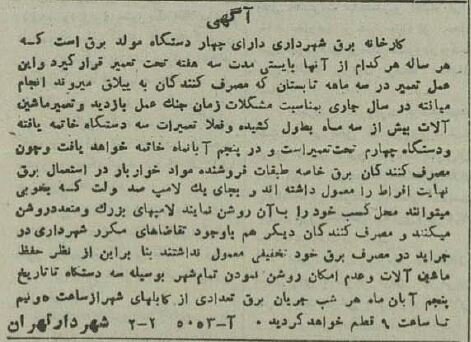 آگهی
کارخانه برق شهرداری دارای چهار دستگاه مولد برق است که
هر ساله هر کدام از آنها بایستی مدت سه هفته تحت تعمیر قرار گیرد و این
عمل تعمیر در سه ماهه تابستان که مصرف کنندگان به ییلاق میروند انجام
مییافته در سال جاری بمناسبت مشکلات زمان جنگ عمل بازدید و تعمیر ماشین
آلات بیش از سه ماه بطول کشیده و فعلا تعمیرات سه دستگاه خاتمه یافته
و دستگاه چهارم تحت تعمیر است و در پنجم آبانماه خاتمه خواهد یافت و چون
مصرف کنندگان برق خاصه طبقات فروشنده مواد خواربار در استعمال برق
نهایت افراط را معمول داشته اند و بجای یک لامپ صد ولت که بخوبی
میتوانند محل کسب خود را با آن روشن نمایند لامپهای بزرگ و متعدد روشن
میکنند و مصرف کنندگان دیگر هم باوجود تقاضاهای مکرر شهرداری در
جراید در مصرف برق خود تخفیفی معمول نداشتند بنا براین از نظر حفظ
ماشین آلات و عدم امکان روشن نمودن تمام شهر بوسیله سه دستگاه تا تاریخ
پنجم آبان ماه هر شب جریان برق تعدادی از کابلهای شهر از ساعت ۵ و نیم
تا ساعت ۹ قطع خواهد گردید . آ-۵۰۵۳ ۲-۲ شهردار تهران